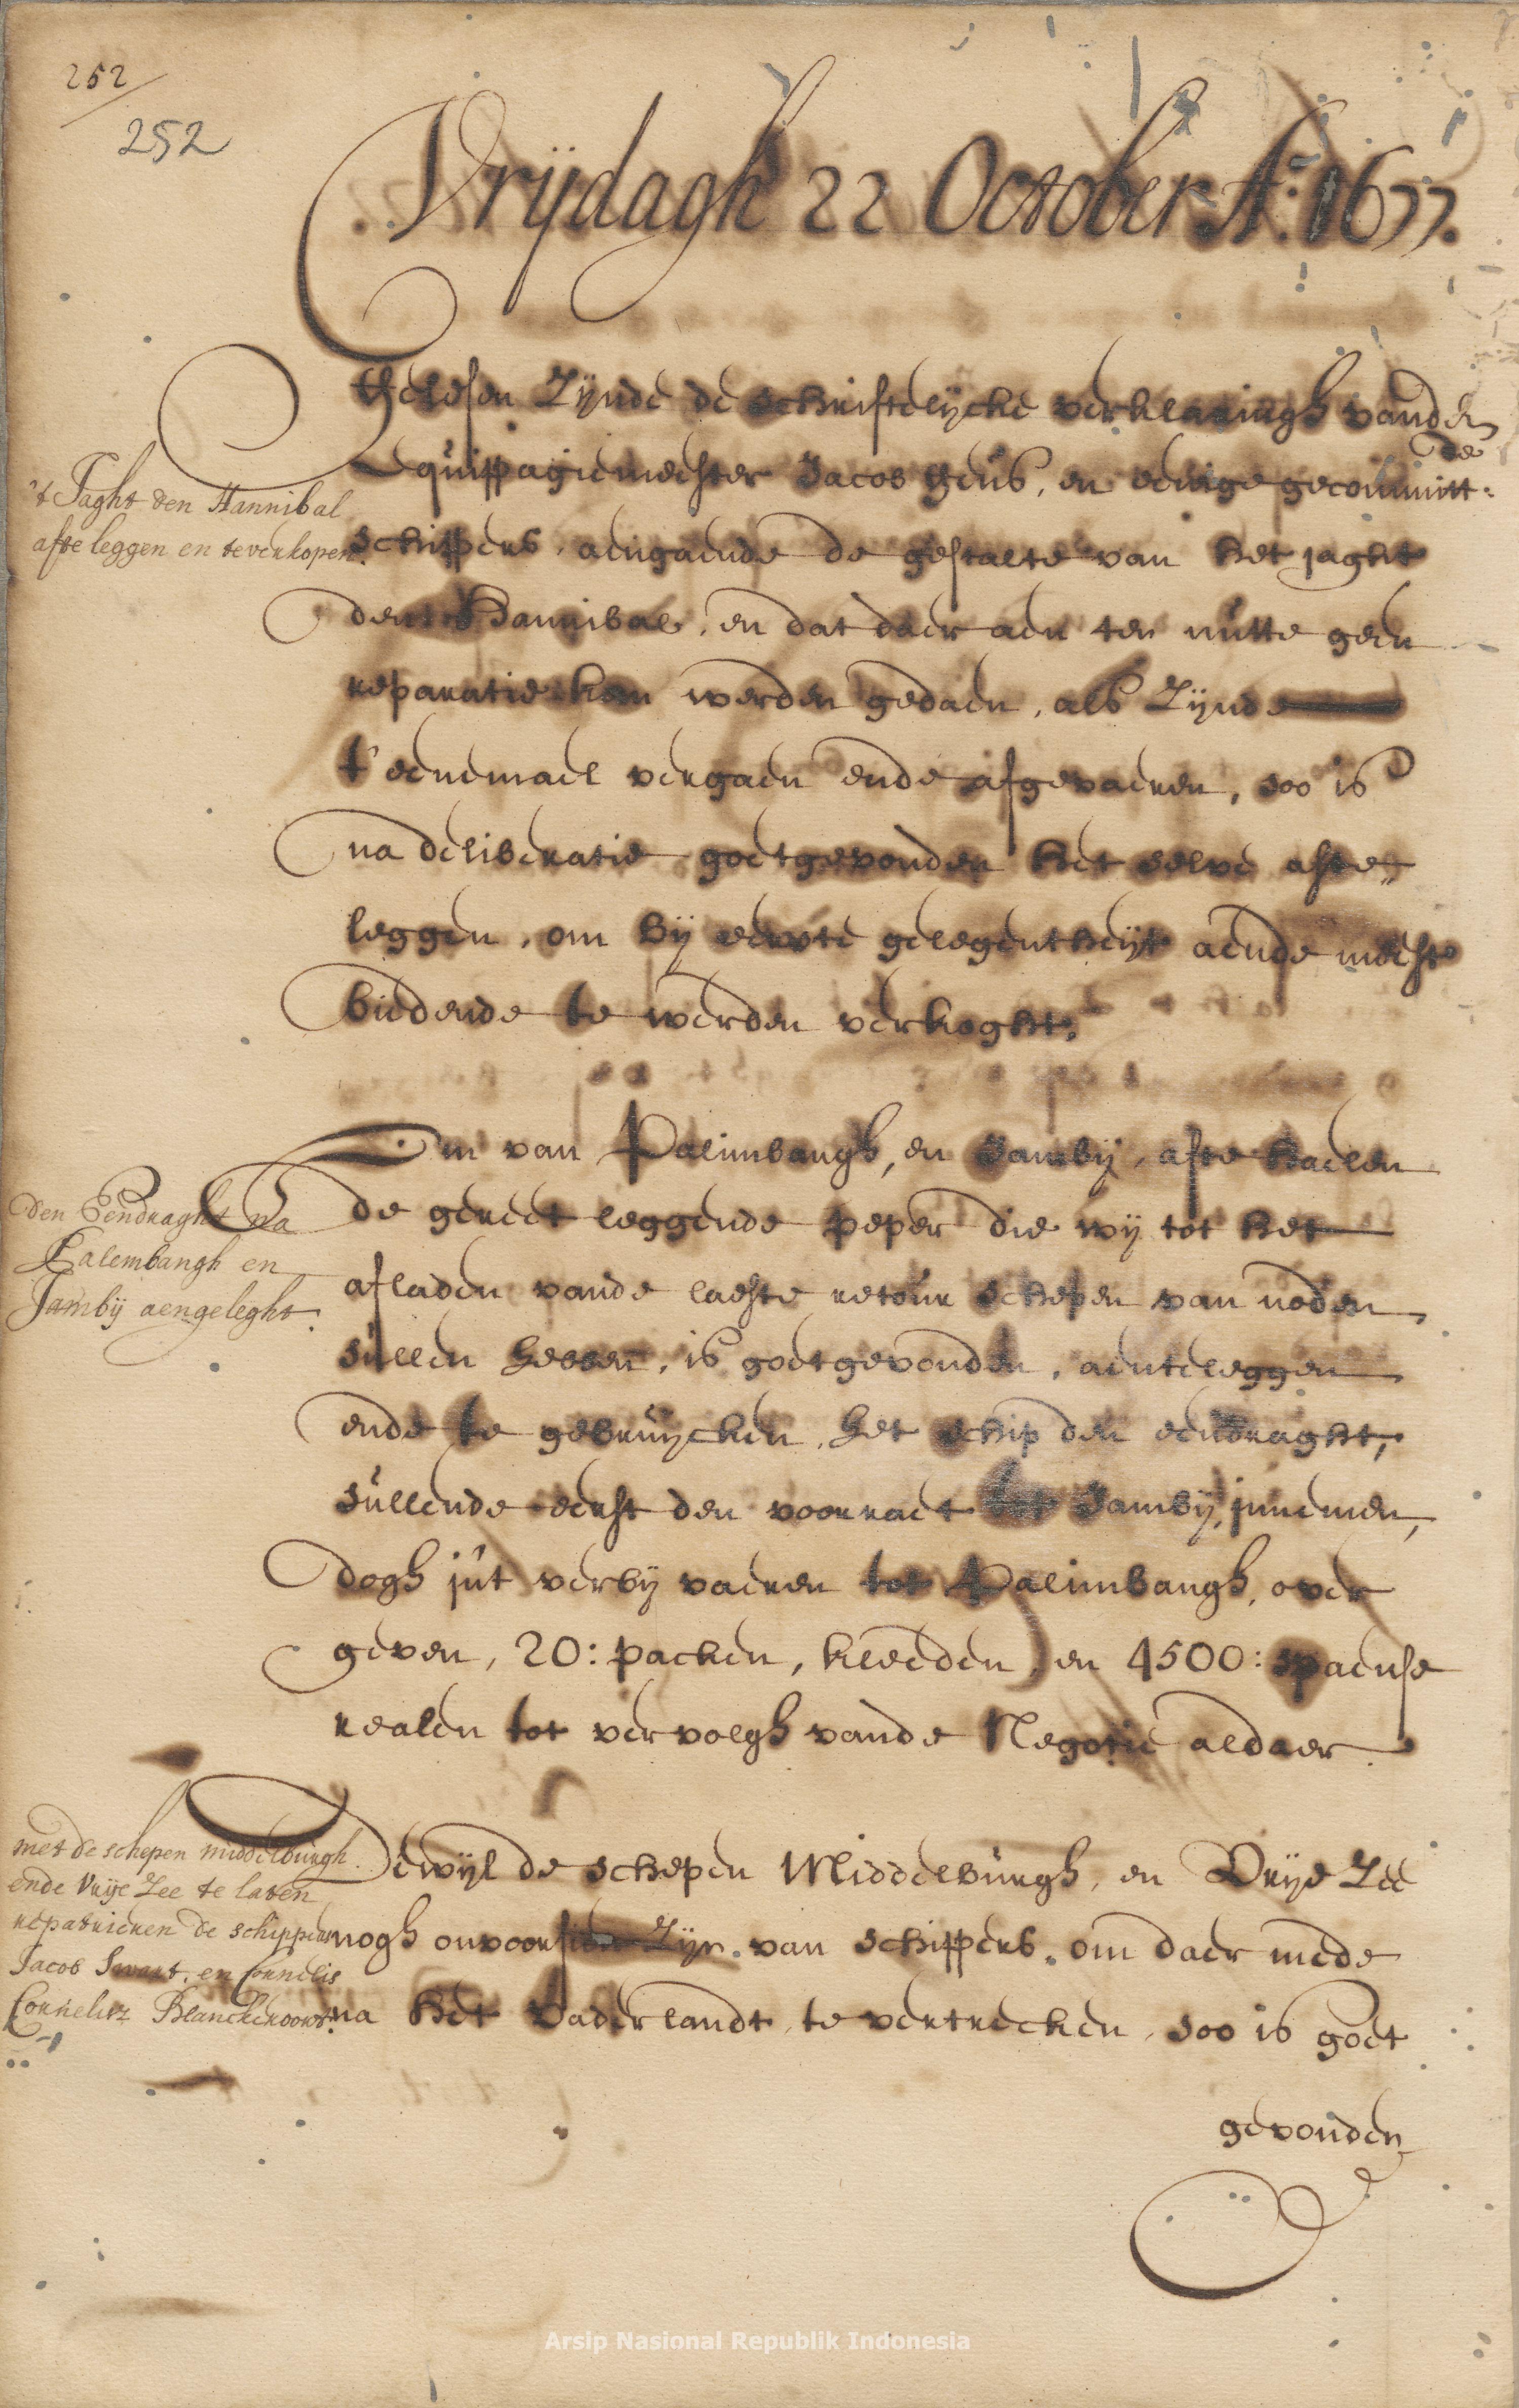 252
252
Vrijdagh 22 October A.o 1677.
't Jaght den Hannibal
afte leggen en te verkopen.
Gelesen Zijnde de schriftelijcke verklaringh vanden
Equippagiemeester Jacos, en eenige gecommitt=
de
schippers, aengaende de gestalte van het jaght
den Hannibal, en dat daer aen ten nutte geen
reparatie kan werden gedaen, als Zijnde
t' eenemael vergaen ende afgevaeren, soo is
na deliberatie goetgevonden het selve afte-
leggen, om bij eerste gelegentheijt aende meest
biedende te werden verkoght.
den Eendraght na
Palembangh en
Jambij aengeleght.
Om van Palimbangh, en Jambij, afte haelen
de gereet leggende peper die wij tot het
afladen vande laeste retour schepen van noden
sullen hebben, is goetgevonden, aenteleggen
ende te gebruijcken, het schip den eendraght,
sullende eerst den voorraet tot Jambij, innemen,
dogh int verbij vaeren tot Palimbangh, over
geven, 20: packen, kleeden, en 4500: spaense
realen tot vervolgh vande Negotie aldaer
met de schepen middelburgh
ende Vrije Zee te laten
repatrieren de schippers
Jacob Swart, en Cornelis
Cornelisz Blanckenoort.
Dewijl de schepen Middelburgh, en Vrije Zee
nogh onvoorsien Zijn van schippers, om daer mede
na het vaderlandt te vertrecken, soo is goet
gevonden
Arsip Nasional Republik Indonesia